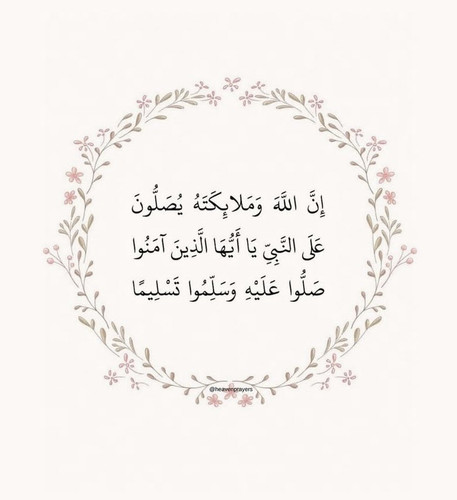 إِنَّ اللَّهَ وَمَلائِكَتَهُ يُصَلُّونَ
عَلَى النَّبِيِّ يَا أَيُّهَا الَّذِينَ آمَنُوا
صَلُّوا عَلَيْهِ وَسَلِّمُوا تَسْلِيمًا
@heavenprayers